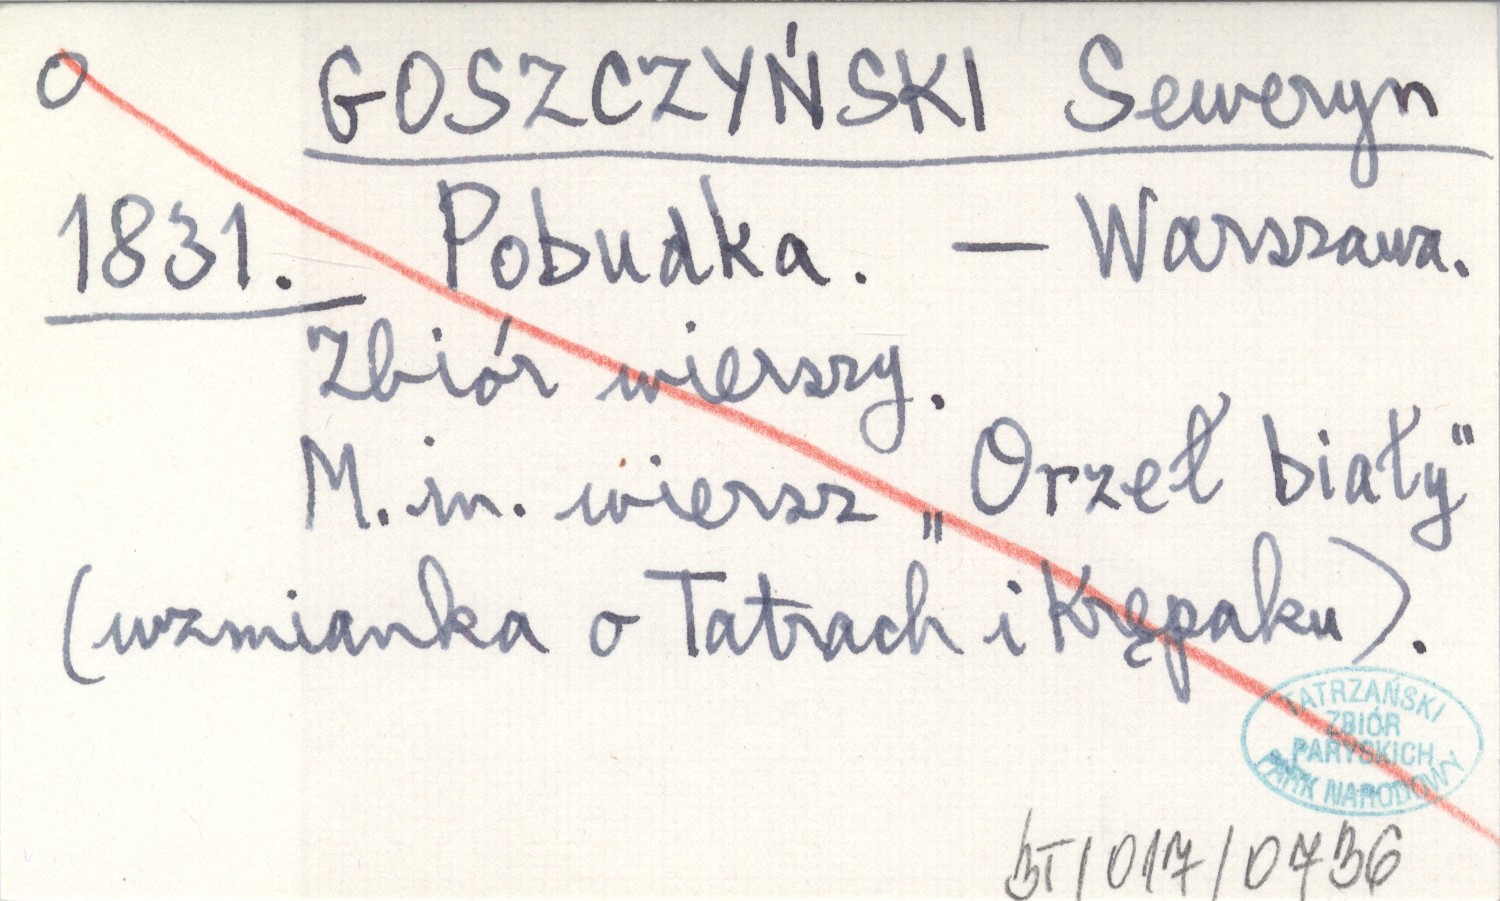 o GOSZCZYŃSKI Seweryn
1831. Pobudka. — Warszawa.
Zbiór wierszy.
M. in. wiersz „Orzeł biały"
(wzmianka o Tatrach i Krępaku).
TATRZAŃSKI
ZBIÓR
PARYSKICH
PARK NARODOWY
BT/017/0736